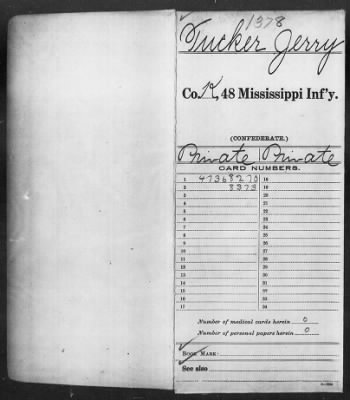 1378
Tucker Jerry
Co. K, 48 Mississippi Inf'y.
(CONFEDERATE.)
Private Private
CARD NUMBERS.
1 47368270 18
2 8373 19
3 20
4 21
5 22
6 23
7 24
8 25
9 26
10 27
11 28
12 29
13 30
14 31
15 32
16 33
17 34
Number of medical cards herein 0
Number of personal papers herein 0
BOOK MARK:
See also